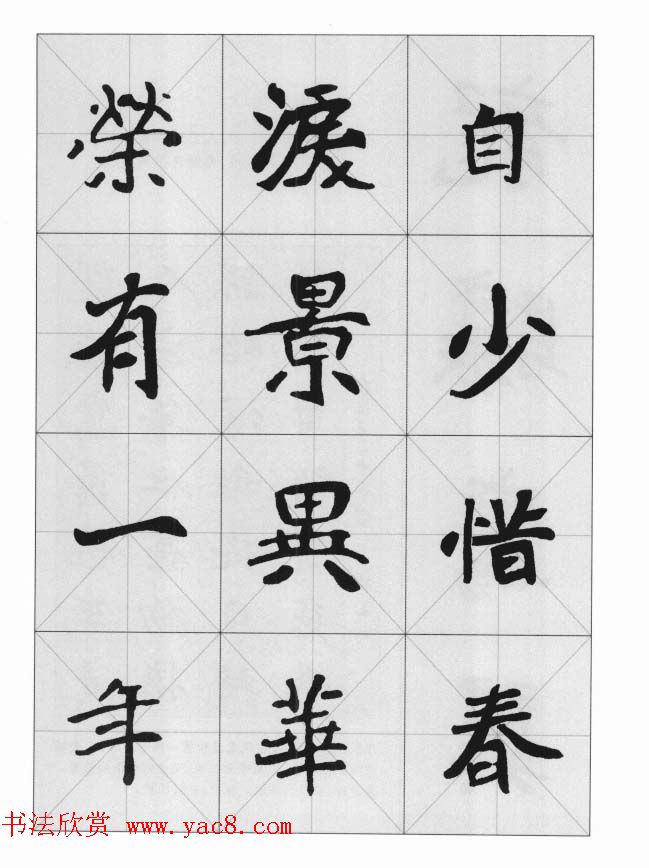 自少惜春
淚景異華
榮有一年
书法欣赏 www.yac8.com